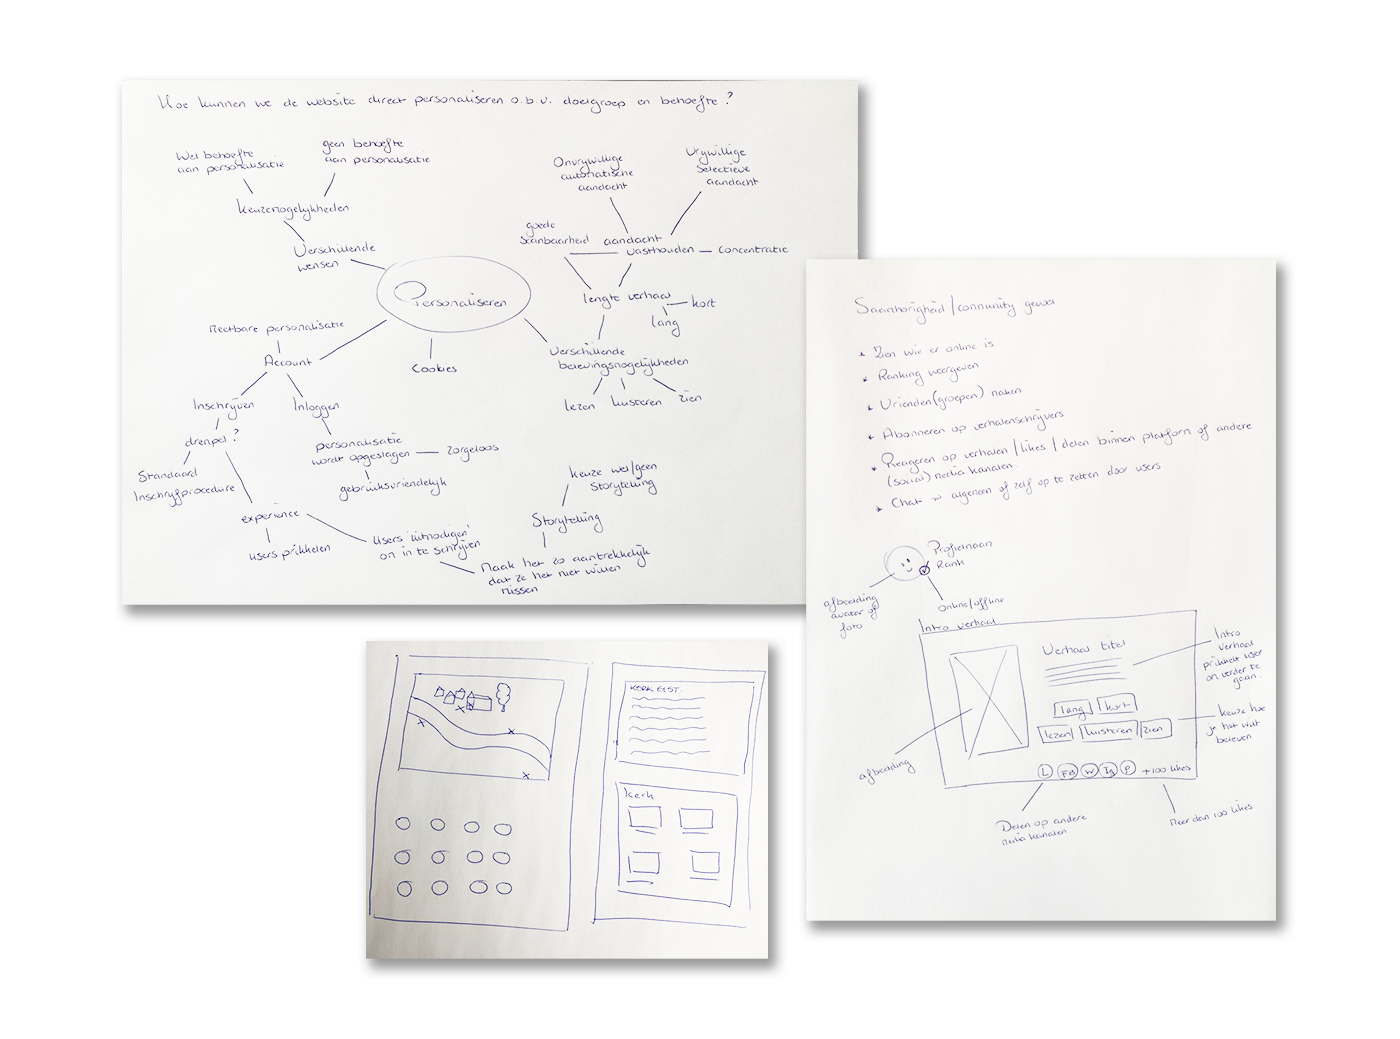 Hoe kunnen we de website direct personaliseren o.b.v. doelgroep en behoefte?
Wel behoefte
aan personalisatie
geen behoefte
aan personalisatie
keuzemogelijkheden
Verschillende
wensen
Personaliseren
Onvrywillige
automatische
aandacht
Vrywillige
Selectieve
aandacht
goede
Scanbaarheid
aandacht
vasthouden
concentratie
lengte verhaal
kort
lang
Verschillende
belevingsmogelijkheden
lezen
luisteren
zien
Meetbare personalisatie
Account
Cookies
Inschrijven
Inloggen
drempel?
personalisatie
wordt opgeslagen
zorgeloos
gebruiksvriendelyk
Standaard
Inschryfprocedure
experience
users prikkelen
users uitnodigen
om in te schrijven
Maak het zo aantrekkelijk
dat ze het niet willen
missen
Storytelling
keuze wel/geen
Storytelling
Saamhorigheid / community gevoel
* Zien wie er online is
* Ranking weergeven
* Vrienden(groepen) maken
* Abonneren op verhalenschrijvers
* Reageren op verhalen / likes / delen binnen platform of andere
(social) media kanalen.
* Chat → algemeen of zelf op te zetten door users
Profielnaam
Rank
Online/offline
afbeelding
avatar of
foto
Intro verhaal
Verhaal titel
lang
kort
lezen
luisteren
zien
L
FB
W
Ig
P
+100 likes
Intro
verhaal
prikkelt user
om verder te
gaan.
keuze hoe
je het wilt
beleven
afbeelding
Delen op andere
media kanalen
Meer dan 100 likes
KERK ELST
Kerk